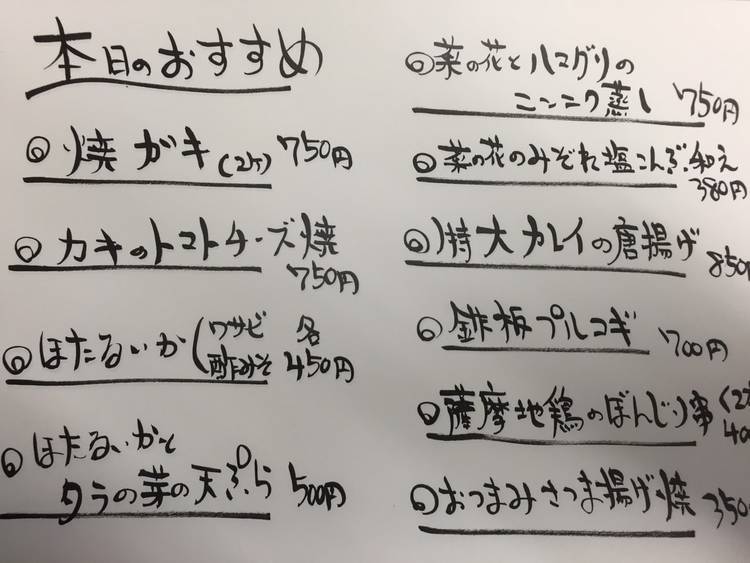 本日のおすすめ
◎焼ガキ(2ケ) 750円
◎カキのトマトチーズ焼
750円
◎ほたるいか(ワサビ 各
酢みそ 450円
◎ほたるいかと
タラの芽の天ぷら 500円
◎菜の花とハマグリの
ニンニク蒸し 750円
◎菜の花のみぞれ塩こんぶ和え
380円
◎特大カレイの唐揚げ 850円
◎鉄板プルコギ 700円
◎薩摩地鶏のぼんじり串
◎おつまみさつま揚げ焼 350